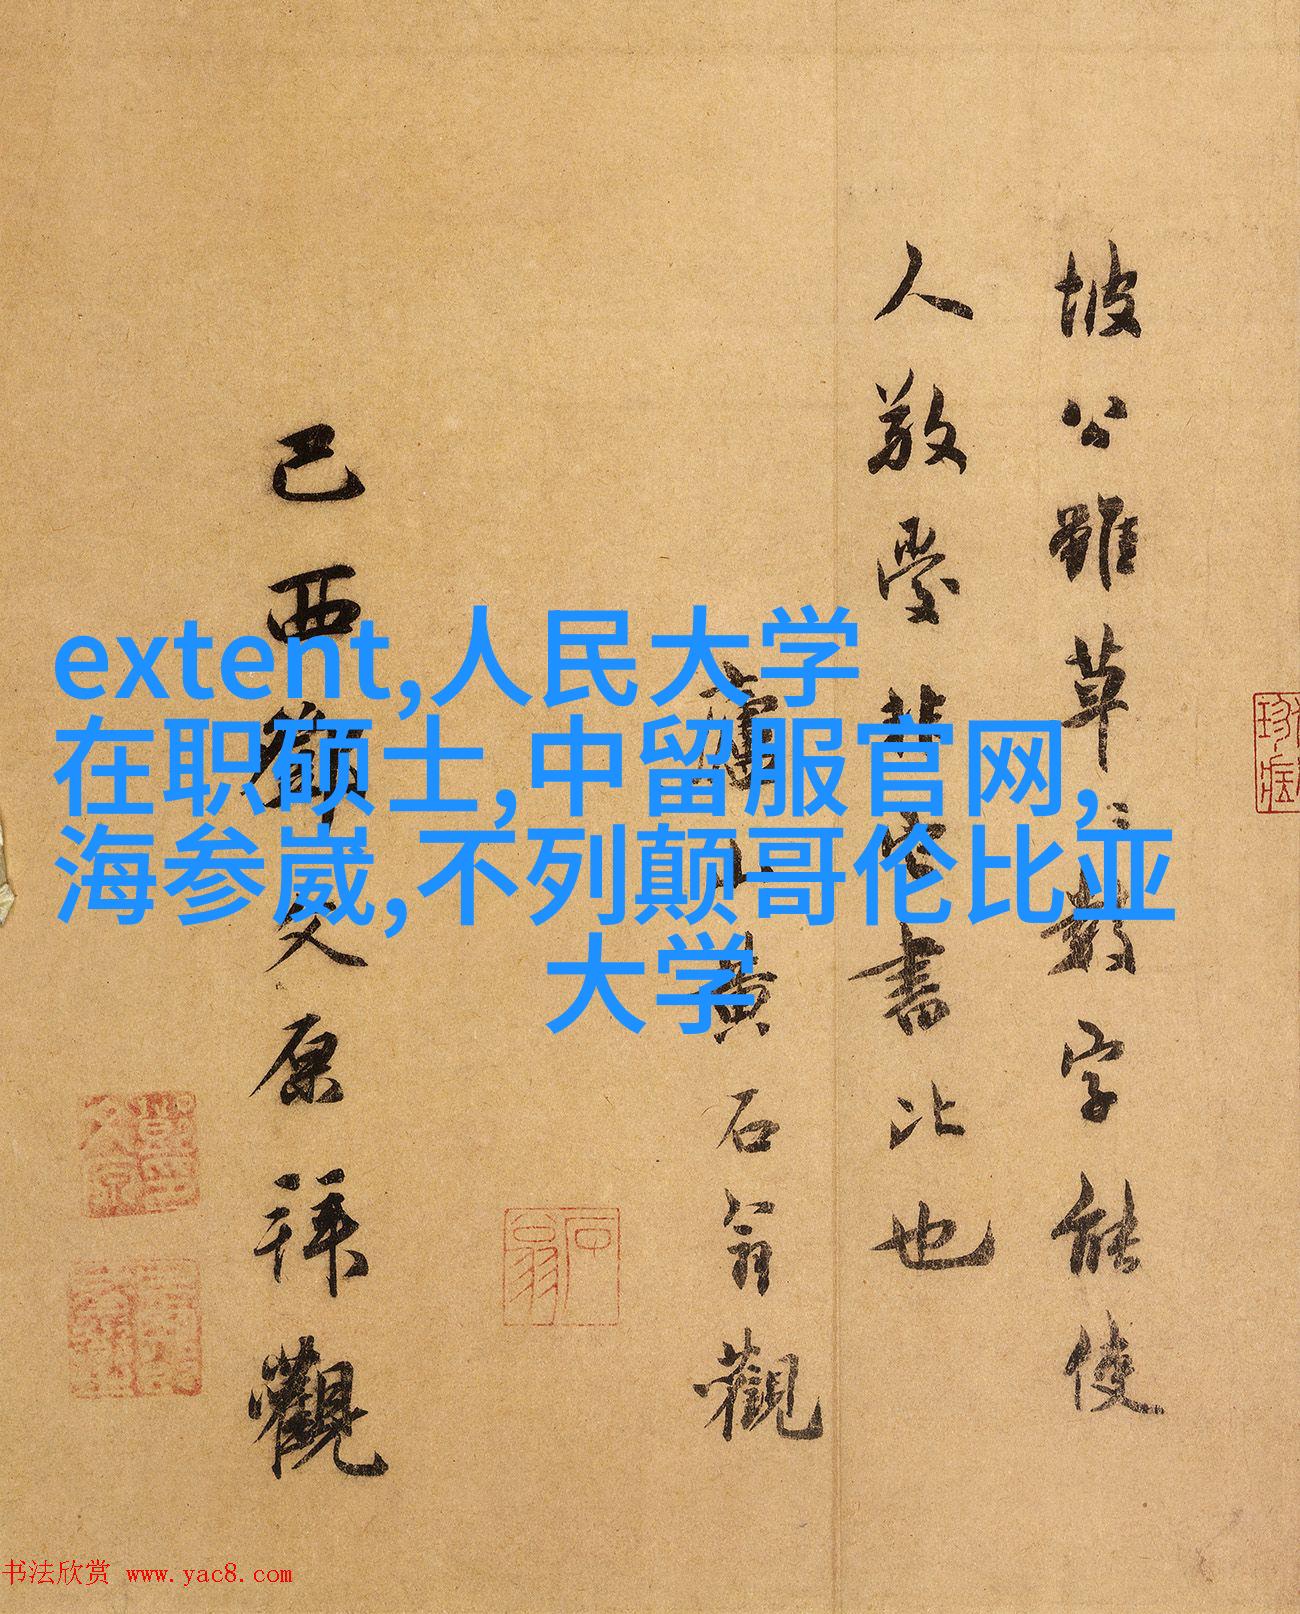 坡公雖草〻數字能使
人敬愛非它書比也
廬山黃石翁觀
己酉鄧文原拜觀
石翁
extent,人民大学
在职硕士,中留服官网,
海参崴,不列颠哥伦比亚
大学
书法欣赏 www.yac8.com